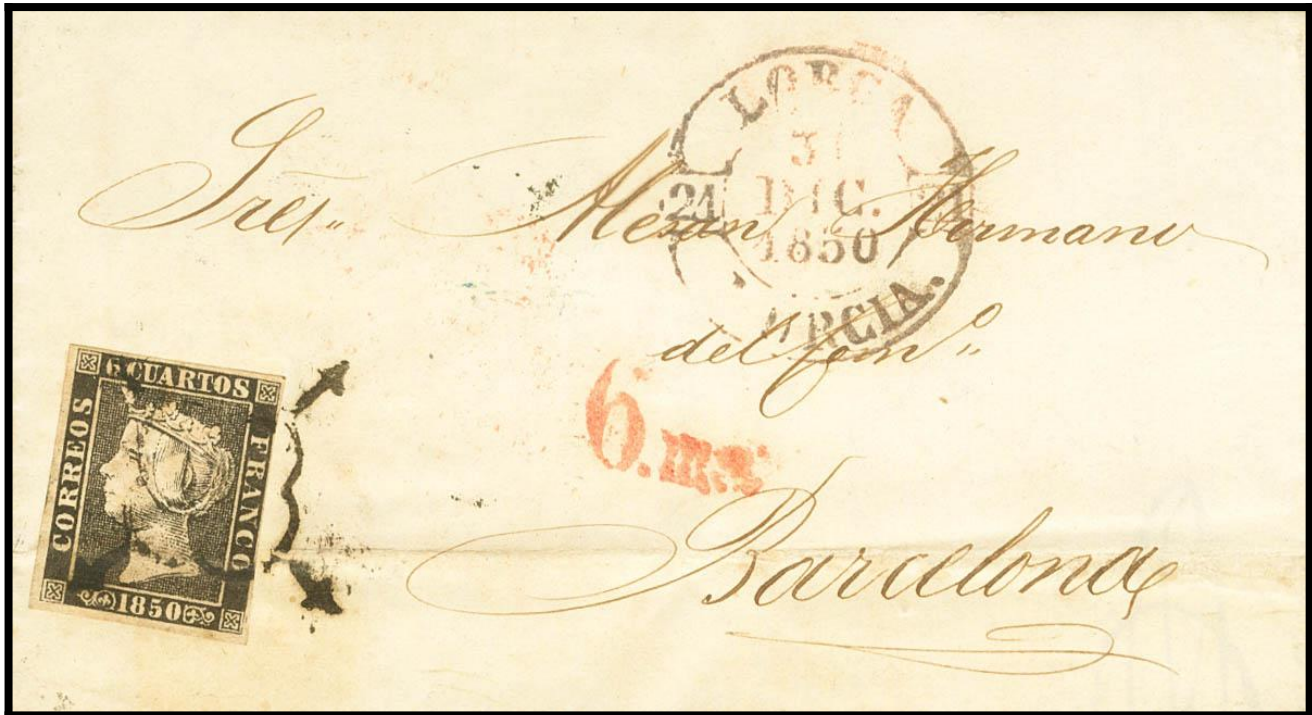 LORCA
3
DIC.
1850
24
MURCIA.
Sres. Hermano
del Com.º
6. ms
Barcelona
6 CUARTOS
CORREOS
FRANCO
1850